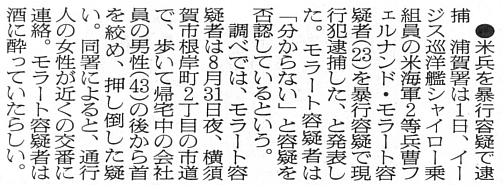 ●米兵を暴行容疑で逮
捕　浦賀署は1日、イー
ジス巡洋艦シャイロー乗
組員の米海軍2等兵曹フ
ェルナンド・モラート容
疑者(23)を暴行容疑で現
行犯逮捕した、と発表し
た。モラート容疑者は
「分からない」と容疑を
否認しているという。
　調べでは、モラート容
疑者は8月31日夜、横須
賀市根岸町2丁目の市道
で、歩いて帰宅中の会社
員の男性(43)の後から首
を絞め、押し倒した疑
い。同署によると、通行
人の女性が近くの交番に
連絡。モラート容疑者は
酒に酔っていたらしい。